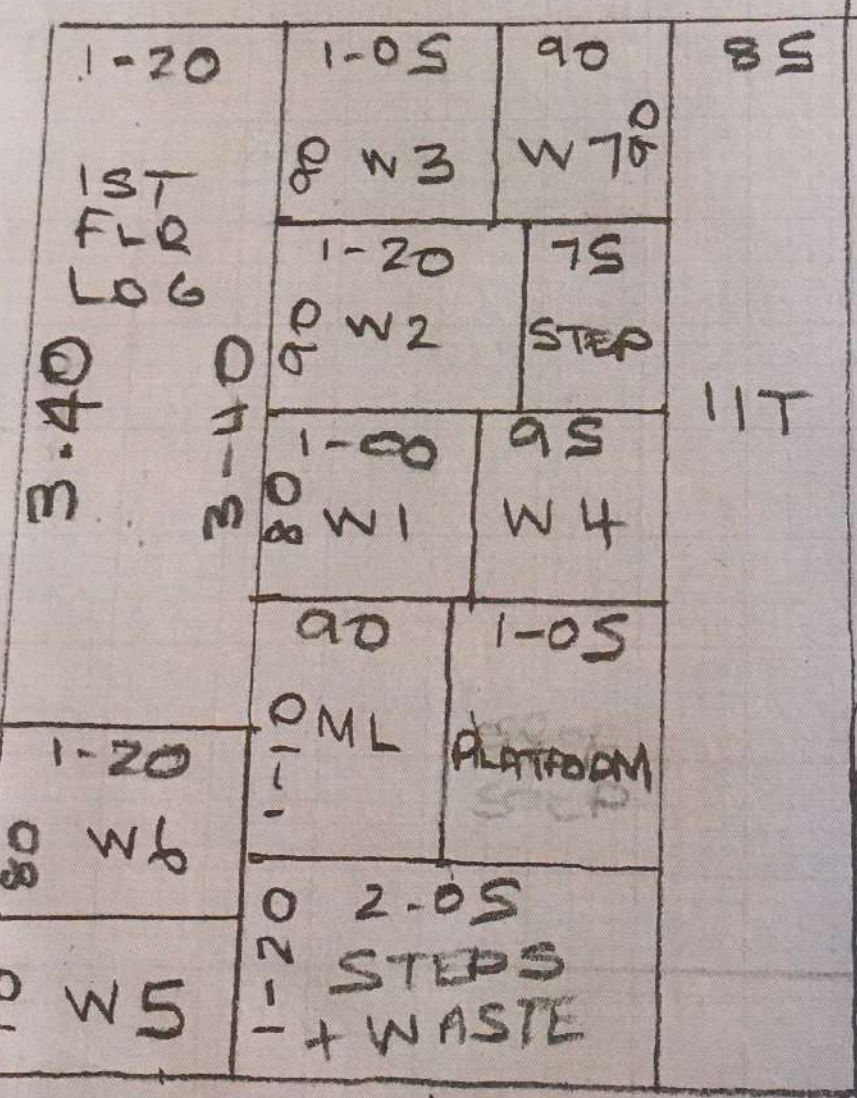 1-20
1ST
FLR
LOG
3.40
3-40
1-05
90 W3
90
W7 90
85
11T
1-20
90 W2
75
STEP
1-00
80 W1
95
W4
90
1-10 ML
1-05
PLATFORM
1-20
80 W6
W5
1-20
2-05
STEPS
+ WASTE